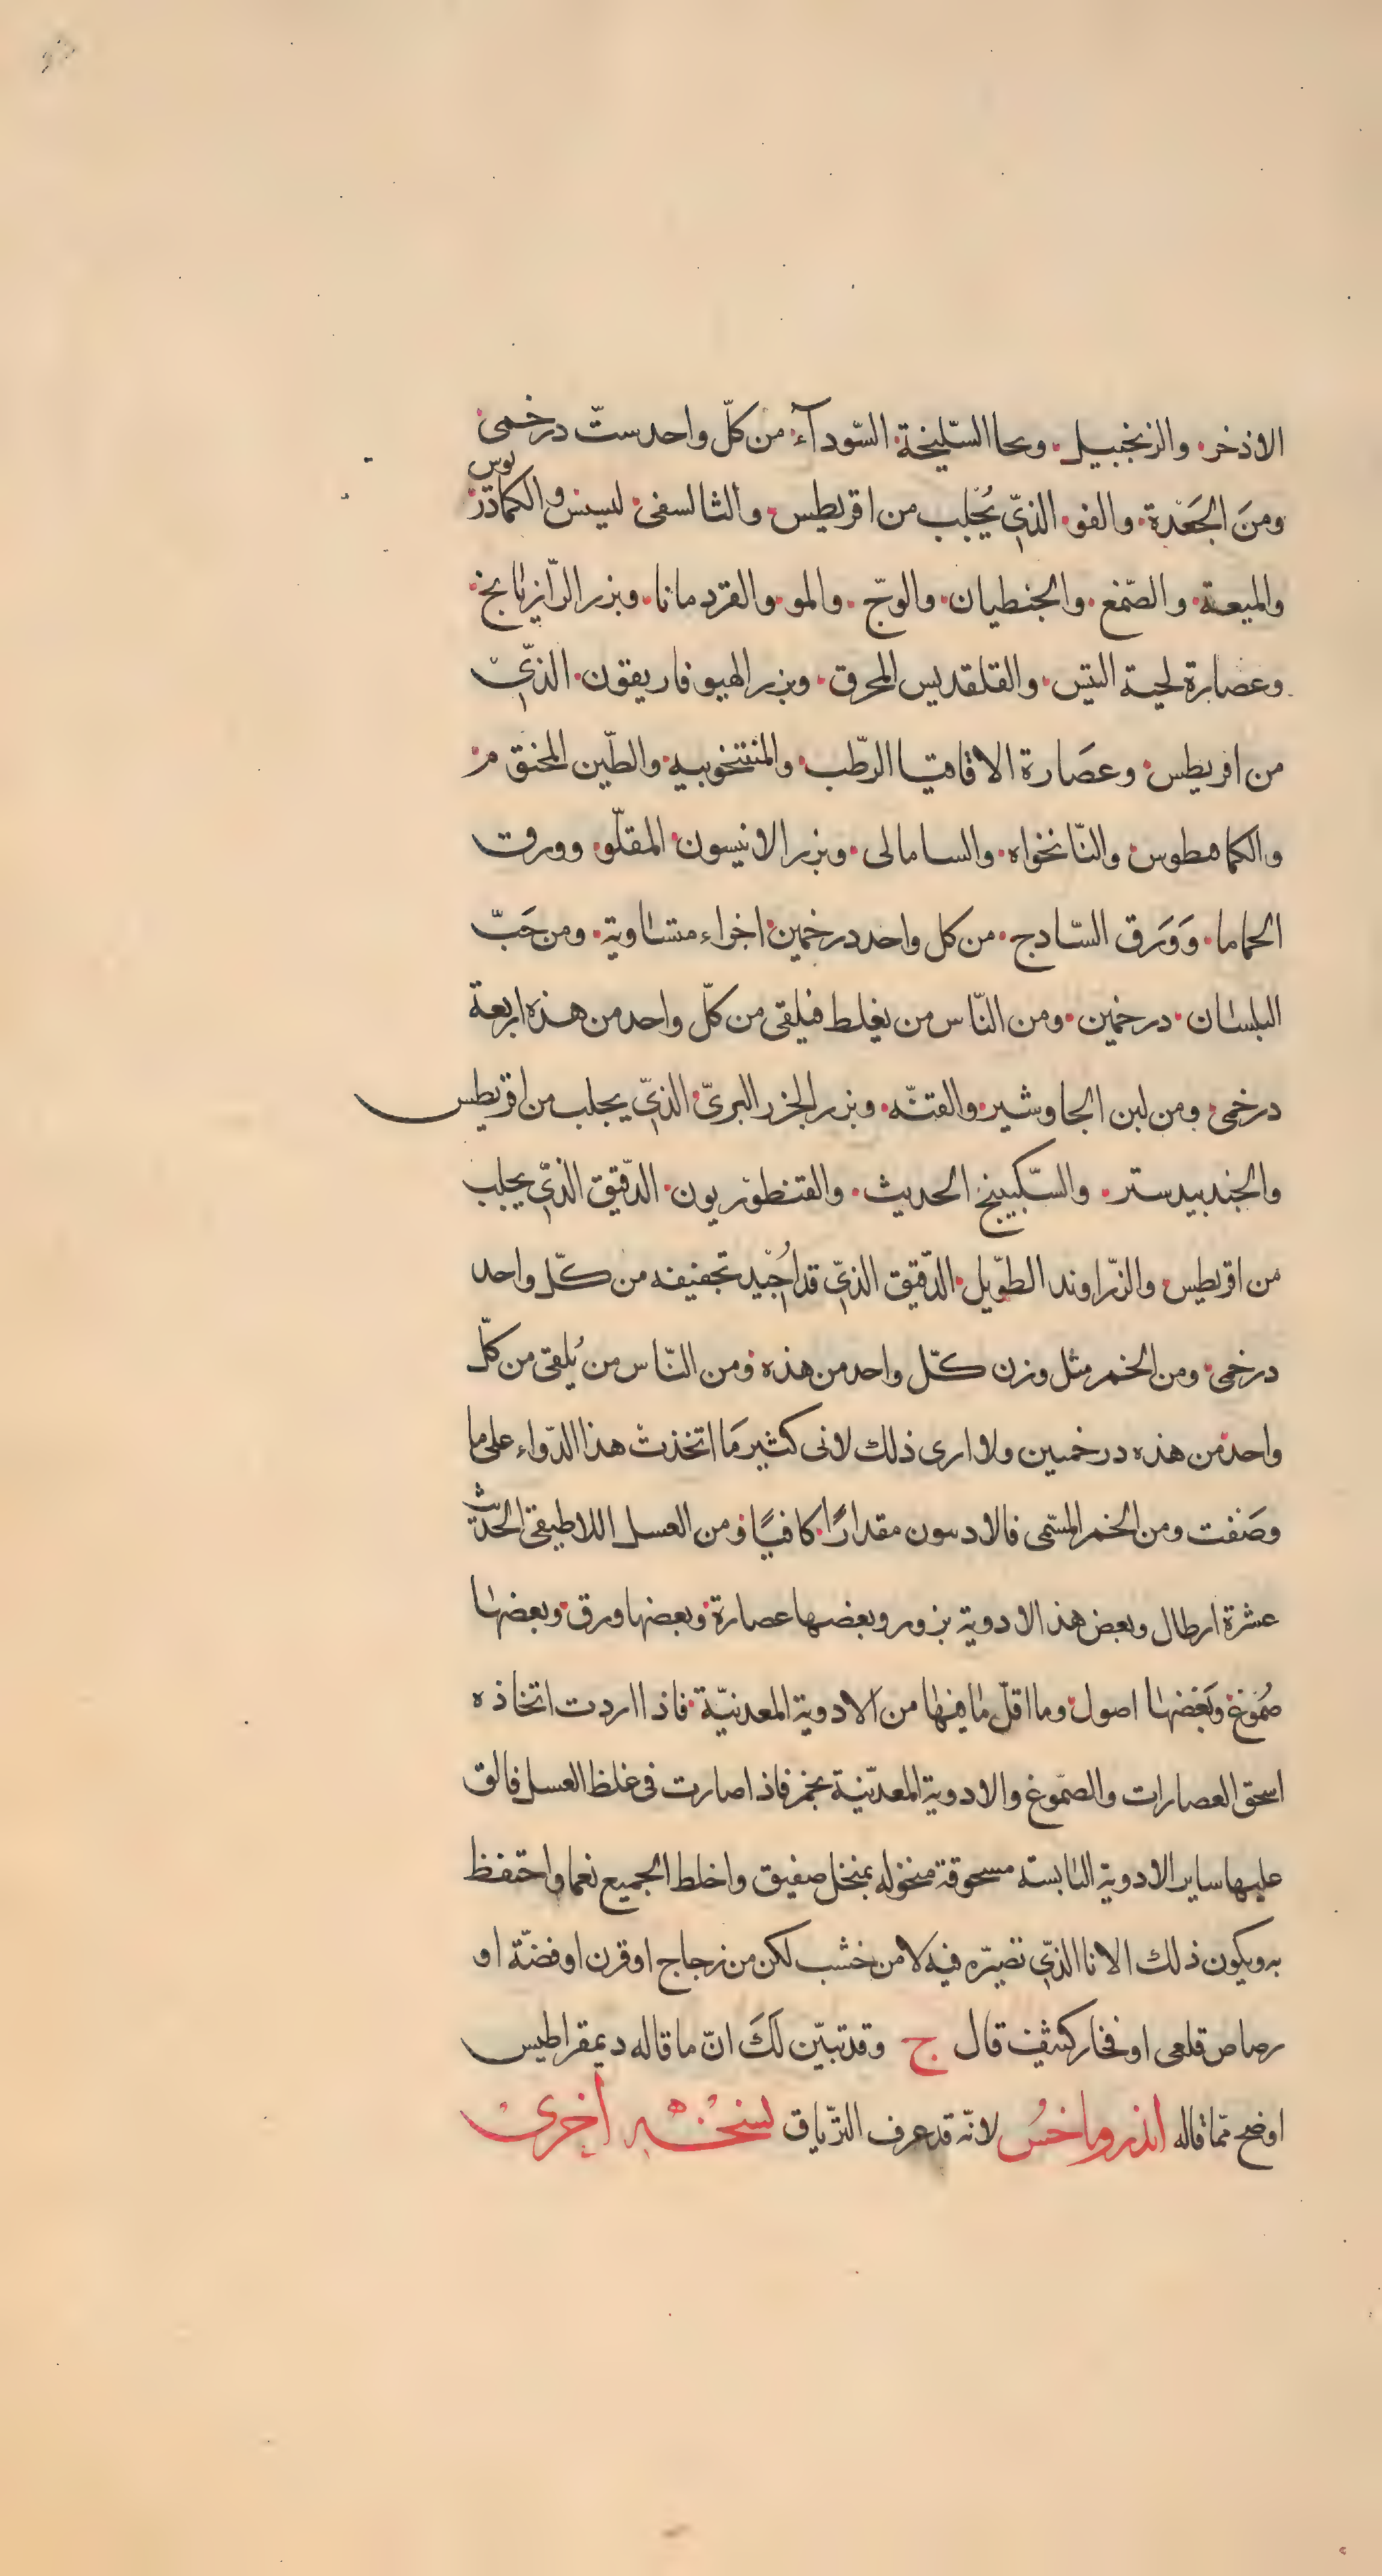 الاذخر٠ والزنجبيل٠ وحا السّليخة٠ السّودآء٠ من كلّ واحد ستّ درخمى
ومنَ الجَعَدة٠ والفو٠ الذيّ يُجّلب من اقريطس٠ والثالسفى٠ لسيس والكمادَرنوس
والميعة٠ والصّمغ٠ والجنطيان٠ والوجّ٠ والمو٠ والقرّدمانا٠ وبزر الرّازيانج٠
وعصارة لحية التيس٠ والقلقديس المحرق٠ وبزر الهيوفاريقون٠ الذيّ
من اقريطس٠ وعصَارة الاقاقيا الرّطب٠ والمنتخوبيه٠ والطّين المختق مر
والكمامطوس٠ والنّانخواه٠ والسامالى٠ وبزر الانيسون٠ المقلّو٠ وورق
الحماما٠ وَوَرق السّادج٠ من كل واحد درخمين٠ اجزاء متساوية٠ ومن حَبّ
البلسان٠ درخمين٠ ومن النّاس من يغلط فيلقى من كلّ واحد من هذه اربعة
درخمى٠ ومن لبن الجاوشير٠ والقنّه٠ وبزر الجزر البريّ٠ الذيّ يجلب من اقريطس
والجندبيدستر٠ والسّكبينج٠ الحديث٠ والقنطوريون٠ الدّقيق الذيّ يجلب
من اقريطس٠ والزّراوند الطّويل٠ الدّقيق الذيّ قد اُجيّد تجفيفه من كلّ واحد
درخمى٠ ومن الخمر مثل وزن كلّ واحد من هذه ومن النّاس من يُلقى من كلّ
واحد من هذه درخمين ولا ارى ذلك لانى كثير مَا اتخذت هذا الدّواء على ما
وصَفت ومن الخمر المسّمى فالادسون مقدارًا٠ كافيًا ومن العسل اللاطيقى الحدّث
عشرة ارطال وبعض هذ الادوية بزور وبعضها عصارة٠ وبعضها ورق٠ وبعضها
صُموْغ٠ وبَعَضها اصول٠ وما اقلّ مافيها من الادوية المعدنيّة٠ فاذا اردت اتخاذه
اسحق العصارات والصمّوغ والادوية المعدّنية بخمر فاذا صارت فى غلظ العسل فالق
عليها ساير الادوية اليابسة مسحوقة منخوله بمنخل صفيق واخلط الجميع نعما واحتفظ
به ويكون ذلك الانا الذيّ تصيرّه فيه لامن خشب لكن من زجاج اوقرن اوفضّة او
رصاص قلعى اوفخار كثيف قال ج وقد تبيّن لَكَ انّ ماقاله ديمقراطيس
اوضح ممّا قاله انذروماخسُ لانّه قد عرف الترّياق نسخه اخرى